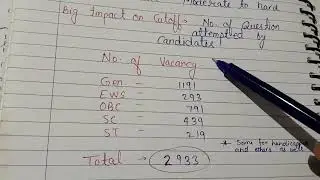 Moderate to hard
Big Impact on Cutoff → No. of Question
attempted by
Candidates!
No. of Vacancy
Gen - 1191
EWS - 293
OBC - 791
SC - 439
ST - 219
* Same for handicapped
and others as well
Total → 2933